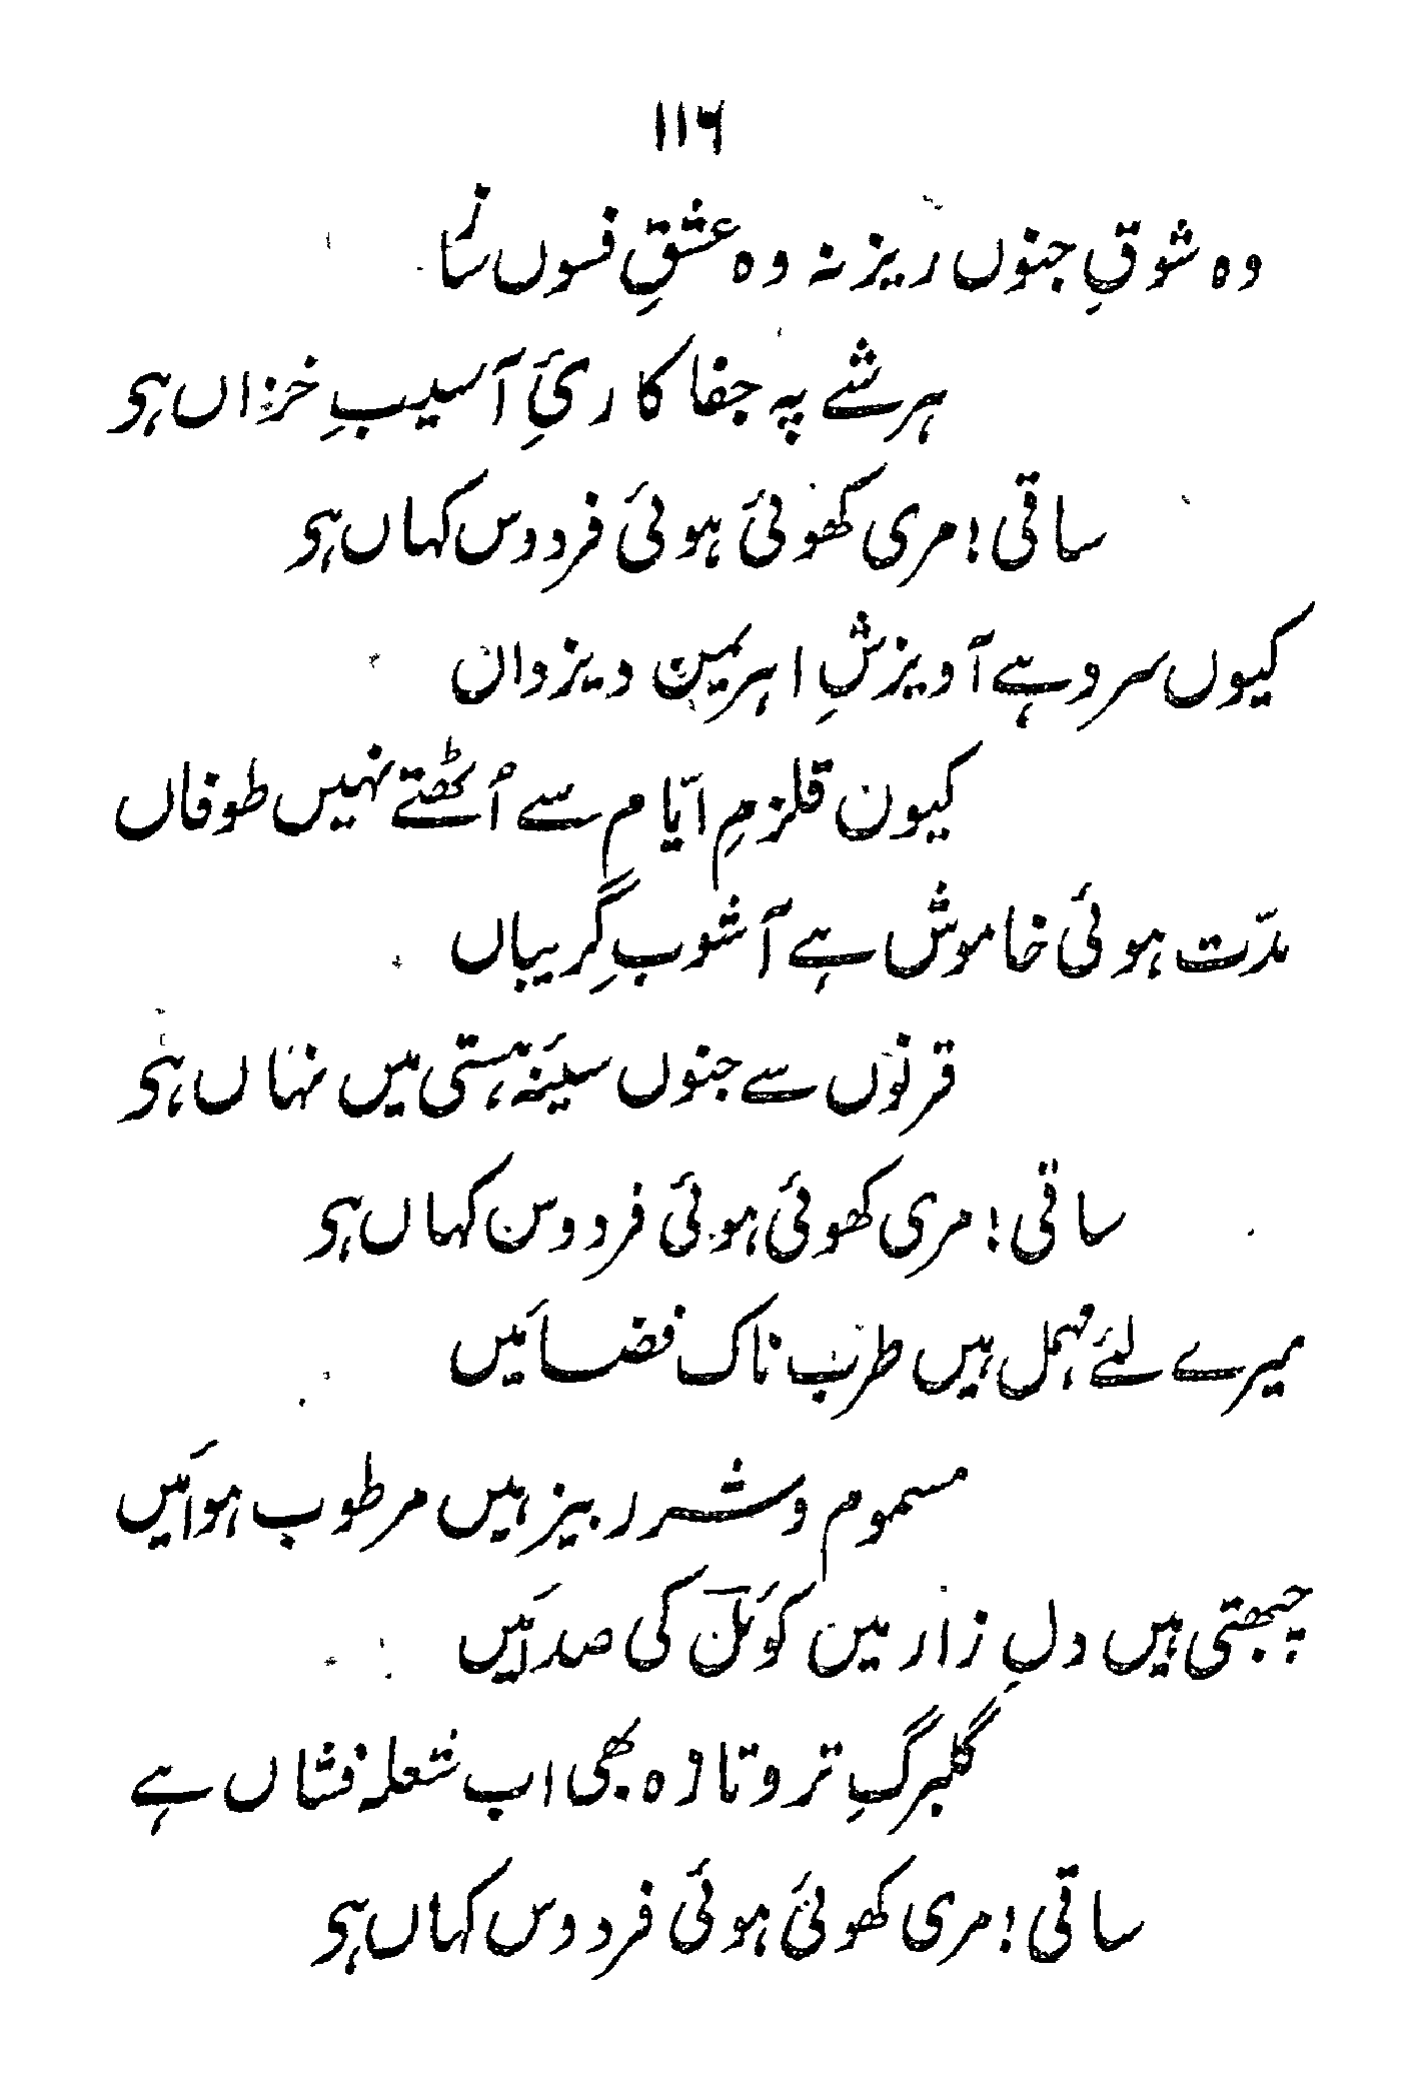 ۱۱۶
وہ شوقِ جنوں ریز نہ وہ عشقِ فسوں ساز
ہر شے پہ جفا کاریِٔ آسیبِ خزاں ہے
ساقی! مری کھوئی ہوئی فردوس کہاں ہے
کیوں سرد ہے آویزشِ اہریمن و یزدان
کیون قلزمِ ایّام سے اُٹھتے نہیں طوفاں
مدّت ہوئی خاموش ہے آشوبِ گریباں
قرنوں سے جنوں سینۂ ہستی میں نہاں ہے
ساقی! مری کھوئی ہوئی فردوس کہاں ہے
میرے لئے مہمل ہیں طرب ناک فضائیں
مسموم و شرر بیز ہیں مرطوب ہوائیں
چبھتی ہیں دلِ زار میں کوئل کی صدائیں
گلبرگِ تر و تازہ بھی اب شعلہ فشاں ہے
ساقی! مری کھوئی ہوئی فردوس کہاں ہے